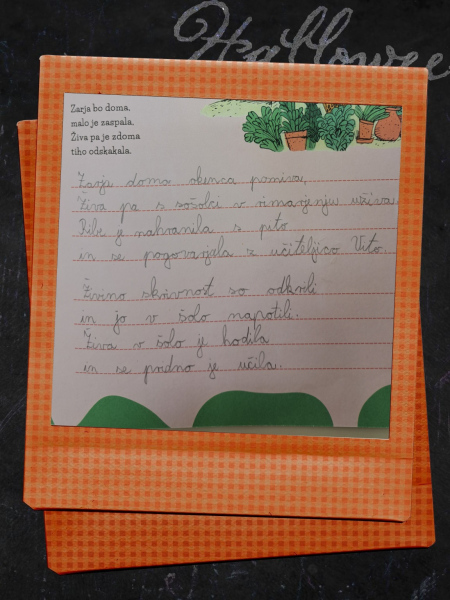 Hallowee
Zarja bo doma,
malo je zaspala,
Živa pa je zdoma
tiho odskakala.
Zarja doma okenca pomiva,
Živa pa s sošolci v rimarjenju uživa.
Ribe je nahranila s pito
in se pogovarjala z učiteljico Vito.
Živino skrivnost so odkrili
in jo v šolo napotili.
Živa v šolo je hodila
in se pridno je učila.